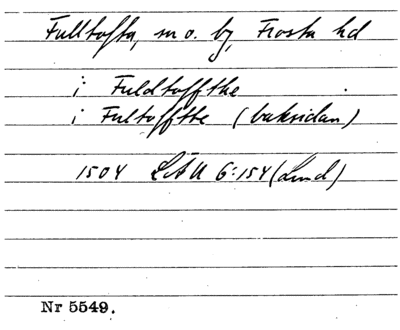 Fulltofta, sn o. by, Frosta hd
i Fuldtoffthe
i Fultoffthe (baksidan)
1504 LÄU 6:154 (Lund)
Nr 5549.